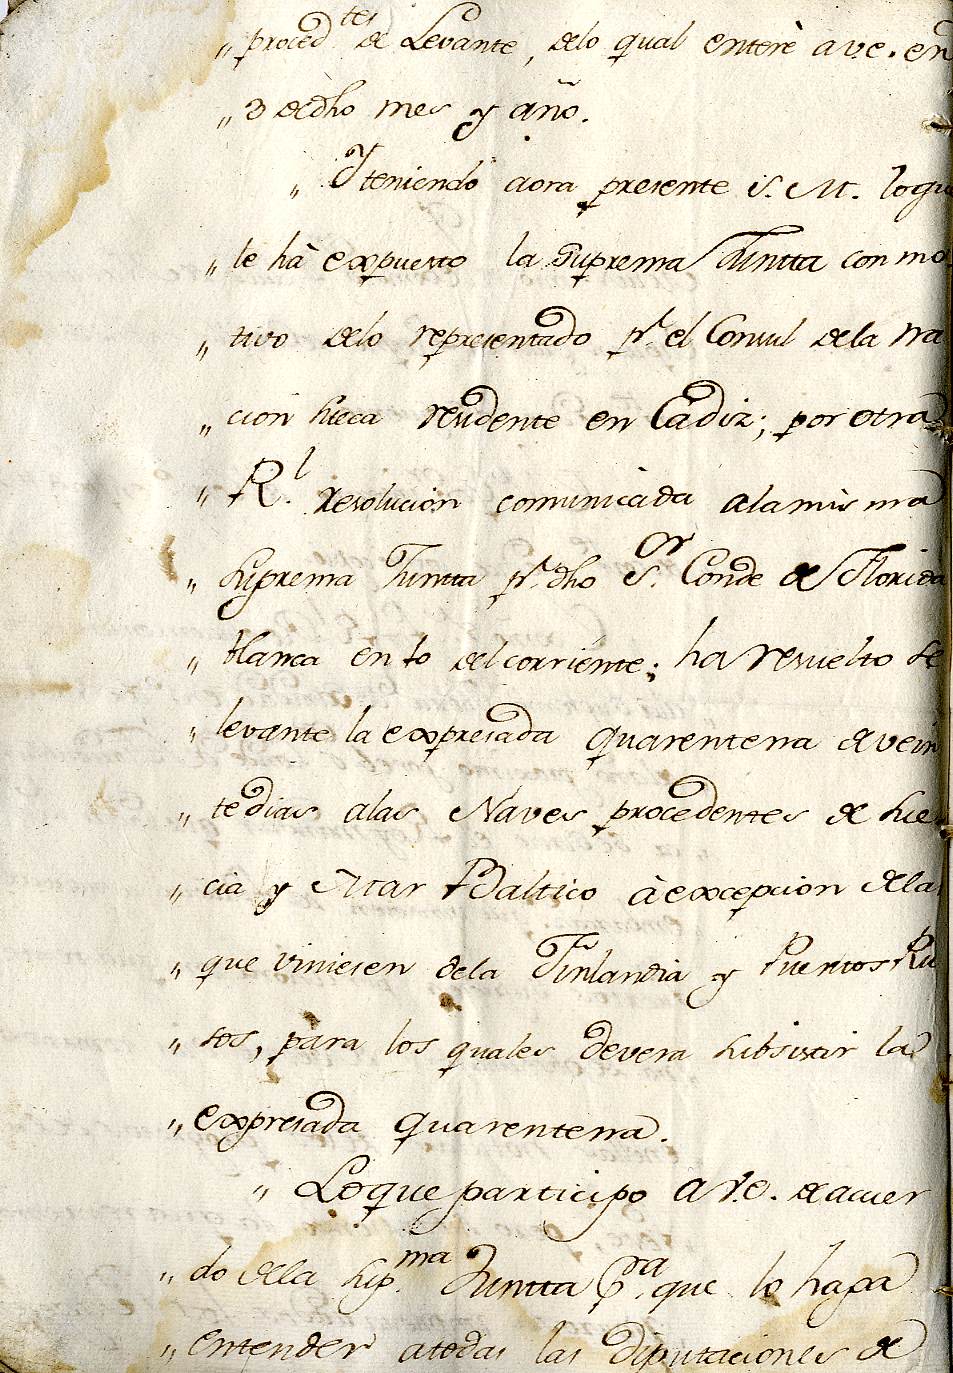 „ proced.tes de Levante, delo qual enterè a v.e. en
„ 3 de dho mes y año.
„ Y teniendo aora presente S. M. loque
„ le hà expuesto la Suprema Juntta con mo
„ tivo delo representado pr. el Consul dela Na
„ cion Sueca residente en Cadiz; por otra
„ R.l resolucion comunicada alamisma
„ Suprema Juntta pr. dho S.or Conde de Florida
„ blanca en 10 del corriente; ha resuelto se
„ levante la expresada quarentena de vein
„ te dias alas Naves procedentes de Sue
„ cia y Mar Baltico à excepcion delas
„ que viniesen dela Finlandia y Puertos Ru
„ sos, para los quales devera subsistir la
„ expresada quarentena.
„ Loque participo a V.e. de acuer
„ do dela Sup.ma Juntta P.ra que lo haga
„ entender atodas las Diputaciones de